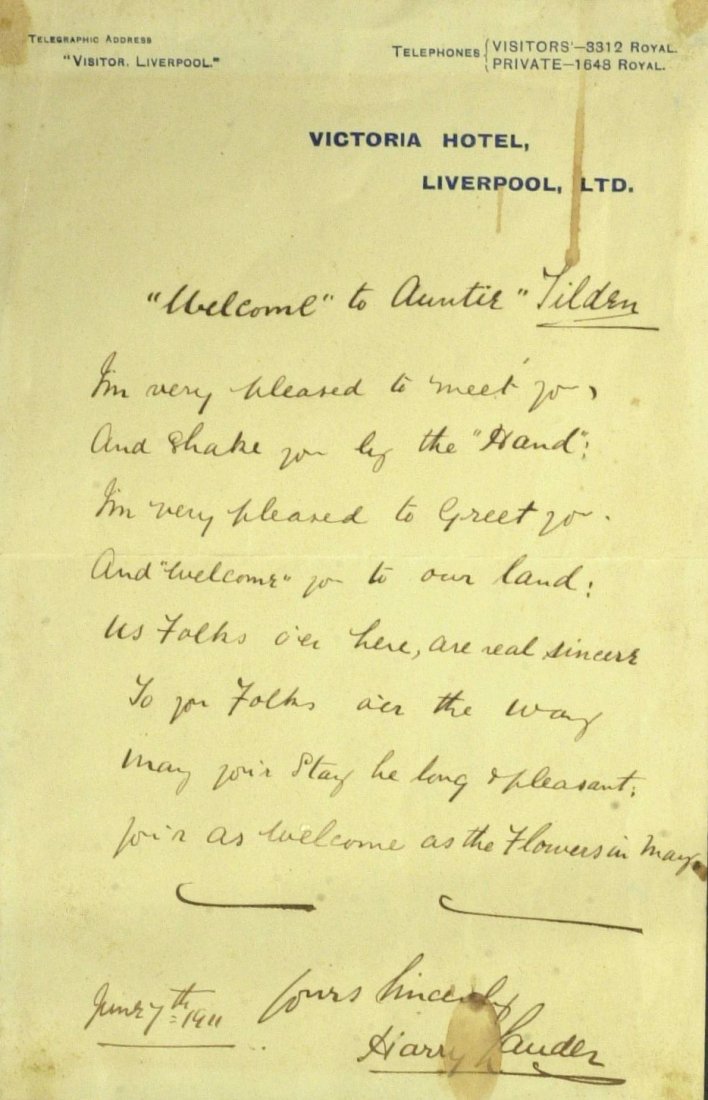 TELEGRAPHIC ADDRESS
"VISITOR, LIVERPOOL."
TELEPHONES { VISITORS'—3312 ROYAL.
PRIVATE—1648 ROYAL.
VICTORIA HOTEL,
LIVERPOOL, LTD.
"Welcome" to Auntie" Tilden
I'm very pleased to "meet" yo,
And Shake you by the "Hand":
I'm very pleased to Greet yo.
And "Welcome" you to our land:
Us Folks o'er here, are real sincere
To you Folks o'er the way
May your Stay be long & pleasant:
You'r as Welcome as the Flowers in May.
June 7th 1911
Yours Sincerely
Harry Lauder